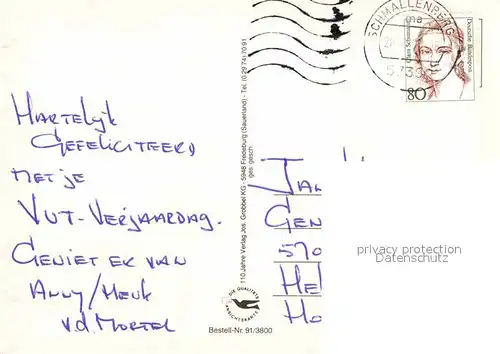 HARTELIJK
GEFELICITEERD
MET JE
VUT-VERJAARDAG.
GENIET ER VAN
ANNY/HENK
v.d. MORTEL
110 Jahre Verlag Jos. Grobbel KG · 5948 Fredeburg (Sauerland) · Tel. (0 29 74) 70 91
ges. gesch.
DIE QUALITÄTS
ANSICHTSKARTE
Bestell-Nr. 91/3800
SCHMALLENBERG
Deutsche Bundespost
80
JA
GEN
570
HEL
HO
privacy protection
Datenschutz